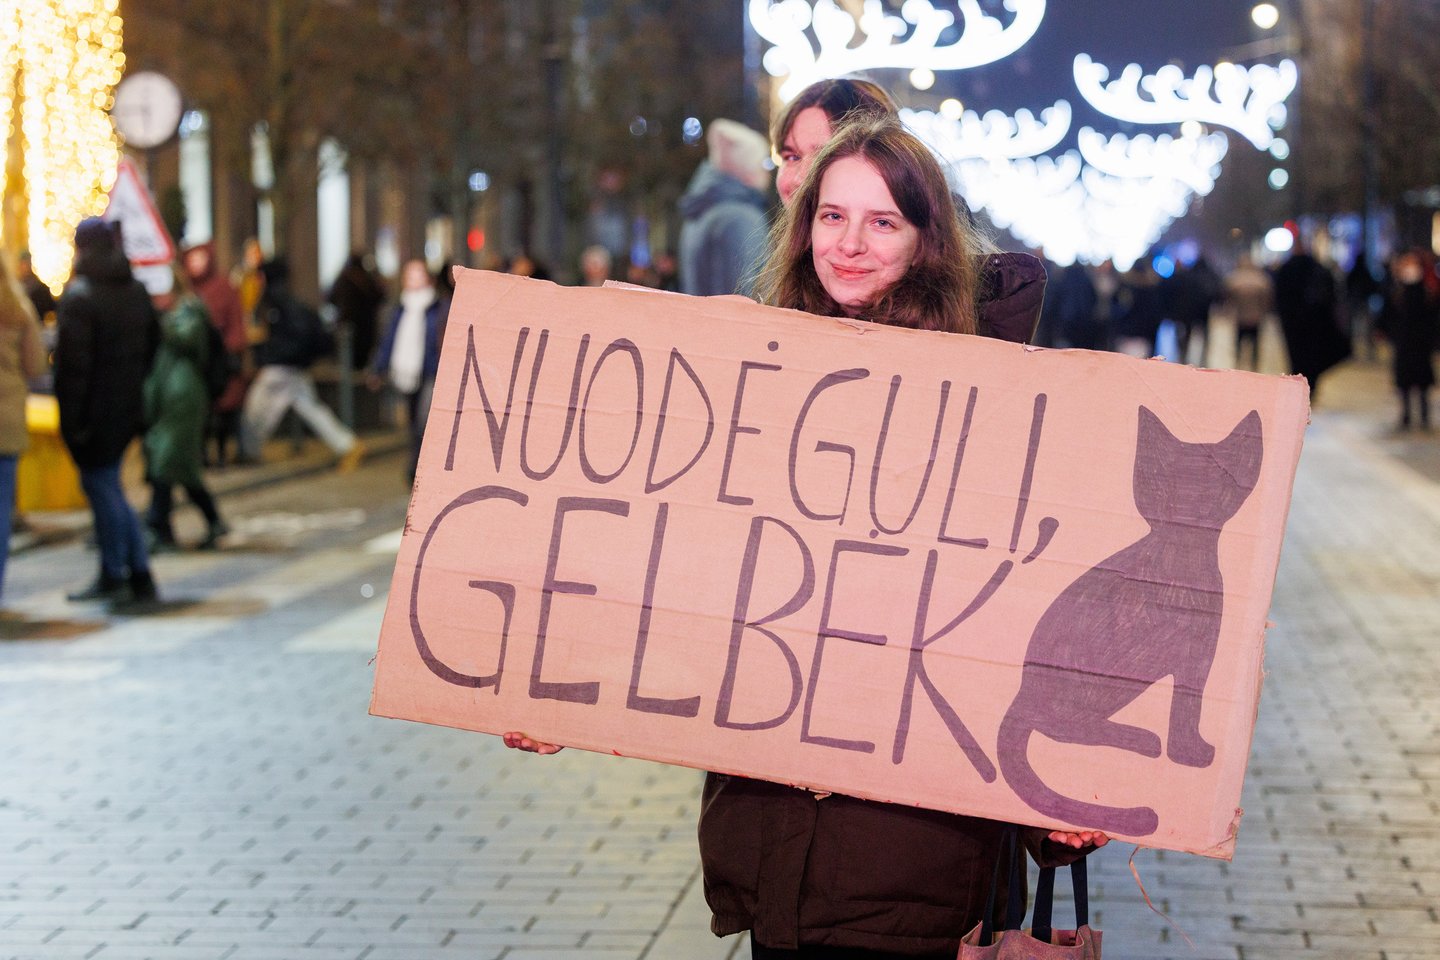 NUODĖGULI,
GELBĖK